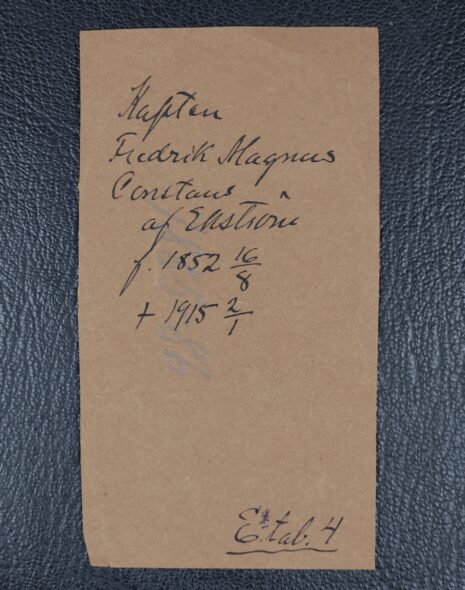 Kapten
Fredrik Magnus
Constans
af Ekström
f. 1852 16/8
+ 1915 2/1
E. tab. 4